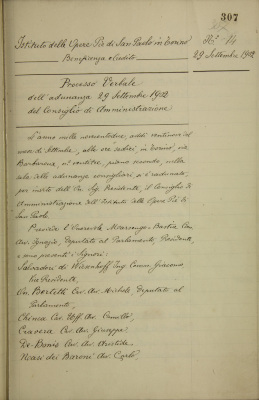 307
N° 14
Istituto delle Opere Pie di San Paolo in Torino
Beneficenza e Credito
29 Settembre 1902
Processo Verbale
dell'adunanza 29 Settembre 1902
del Consiglio di Amministrazione
L'anno mille novecentodue, addì ventinove del
mese di Settembre, alle ore sedici, in Torino, via
Barbaroux, al piano secondo, nella
sala delle adunanze consigliari si è radunato,
per invito dell'On. Sig. Presidente, il Consiglio di
Amministrazione dell'Istituto delle Opere Pie di
San Paolo.
Presiede l'Onorevole Marsengo-Bastia Com.
Avv. Ignazio, Deputato al Parlamento, Presidente,
e sono presenti i Signori:
Salvadori di Wiesenhoff Ing. Comm. Giacomo,
Vice Presidente,
On. Bertetti Cav. Avv. Michele, Deputato al
Parlamento,
Chinea Cav. Uff. Avv. Camillo,
Cravera Cav. Avv. Giuseppe
De-Banio Cav. Avv. Aristide,
Neasi dei Baroni Avv. Carlo,